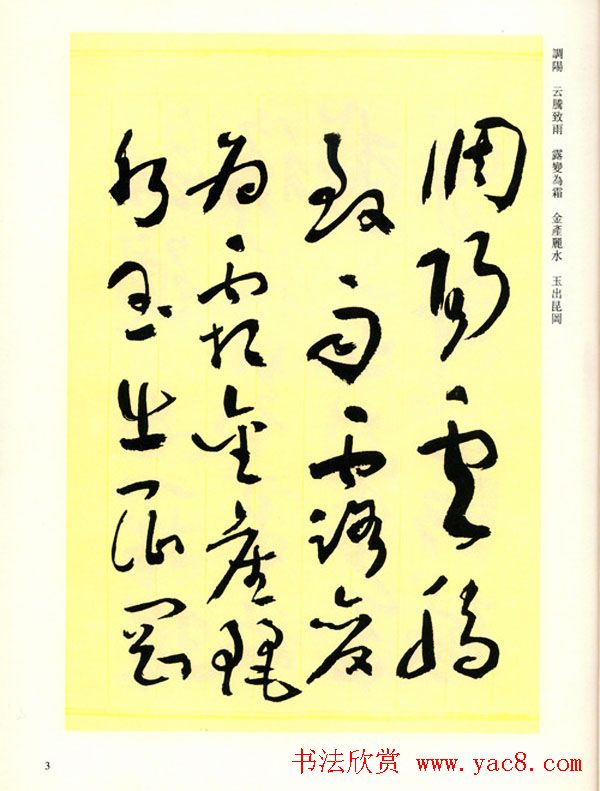 調陽 云騰致雨 露變為霜 金產麗水 玉出昆岡
調陽雲騰
致雨露變
為霜金產麗
水玉出崑岡
3
书法欣赏 www.yac8.com